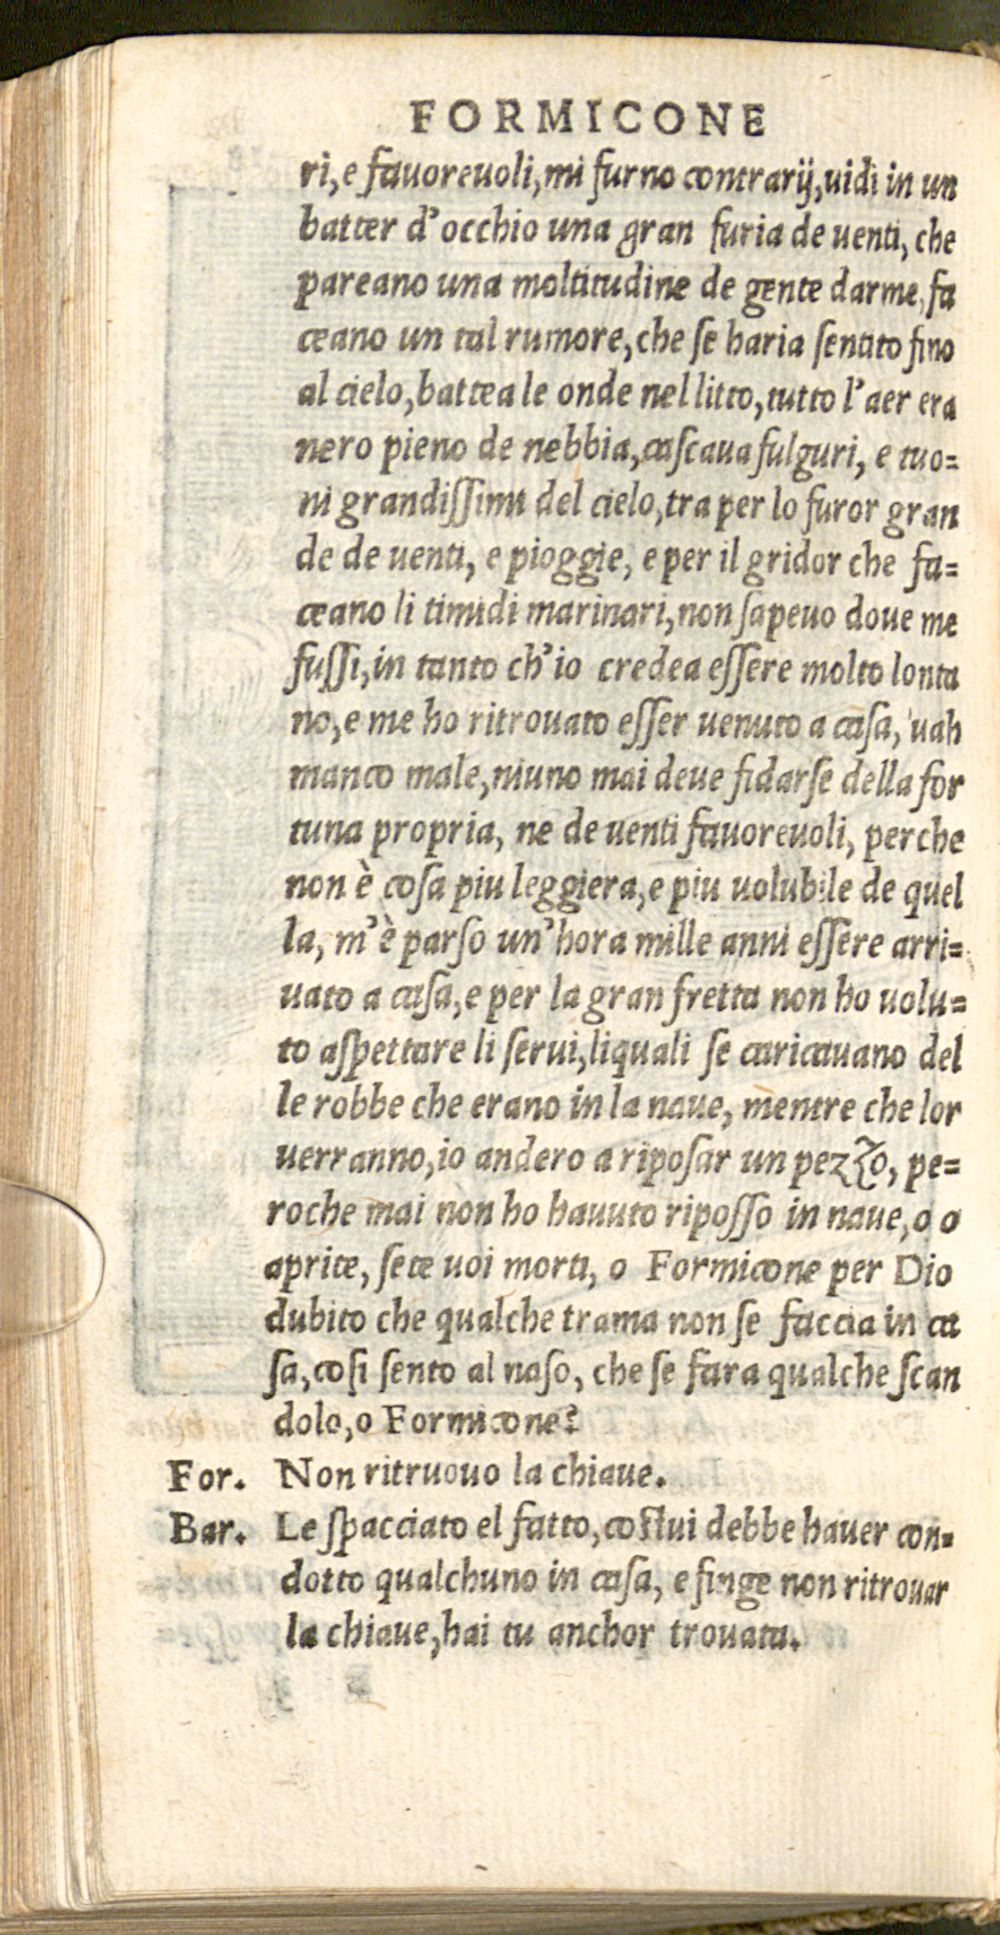 FORMICONE
ri, e fauoreuoli, mi furno contrarij, uidi in un
batter d'occhio una gran furia de uenti, che
pareano una moltitudine de gente darme, fa
ceano un tal rumore, che se haria sentito fino
al cielo, battea le onde nel litto, tutto l'aer era
nero pieno de nebbia, cascaua fulguri, e tuo=
ni grandissimi del cielo, tra per lo furor gran
de de uenti, e pioggie, e per il gridor che fa=
ceano li timidi marinari, non sapeuo doue me
fussi, in tanto ch'io credea essere molto lonta
no, e me ho ritrouato esser uenuto a casa, uah
manco male, niuno mai deue fidarse della for
tuna propria, ne de uenti fauoreuoli, perche
non è cosa piu leggiera, e piu uolubile de quel
la, m'è parso un'hora mille anni essere arri=
uato a casa, e per la gran fretta non ho uolu=
to aspettare li serui, liquali se caricauano del
le robbe che erano in la naue, mentre che lor
uerranno, io andero a riposar un pezzo, pe=
roche mai non ho hauuto riposso in naue, o o
aprite, sete uoi morti, o Formicone per Dio
dubito che qualche trama non se faccia in ca
sa, cosi sento al naso, che se fara qualche scan
dolo, o Formicone?
For. Non ritruouo la chiaue.
Bar. Le spacciato el fatto, costui debbe hauer con=
dotto qualchuno in casa, e finge non ritrouar
la chiaue, hai tu anchor trouata.